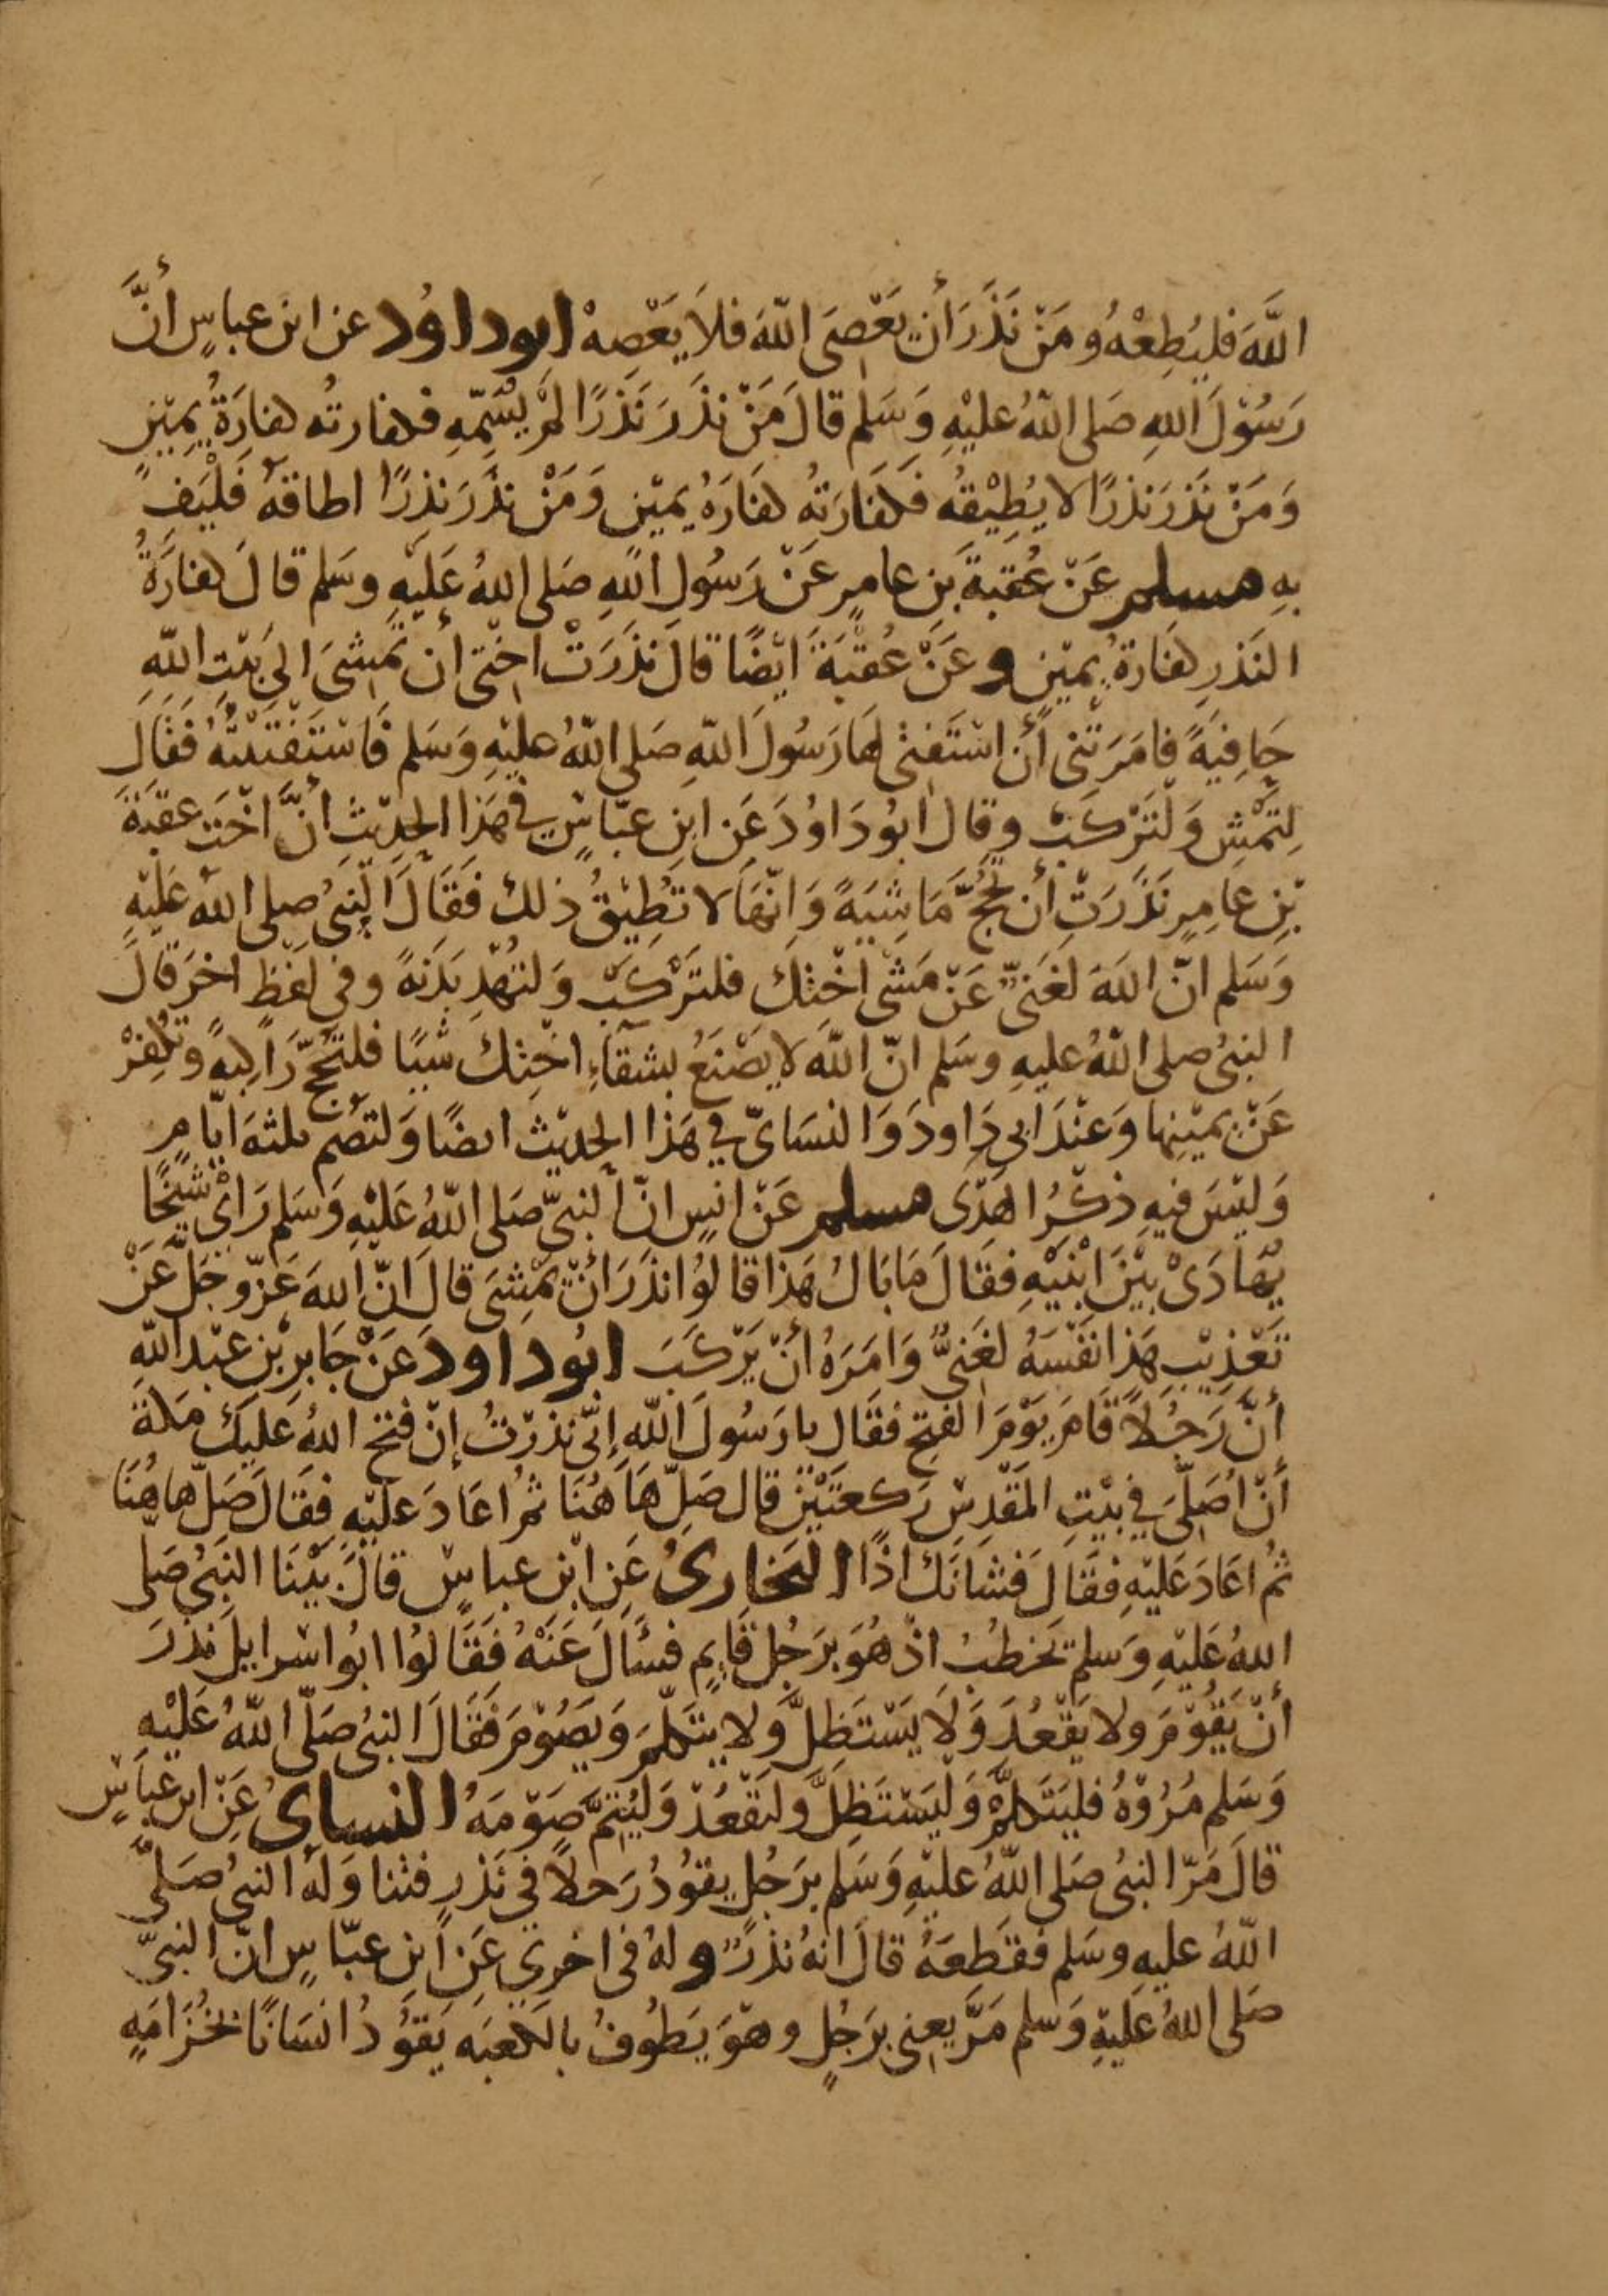 اللَّهَ فليُطِعْهُ ومَنْ نَذَرَ أن يَعْصِيَ اللّهَ فلاَ يَعْصِهْ ابوداوُد عن ابن عباسٍ أنَّ
رَسُوْلَ اللهِ صَلى اللهُ عليْهِ وَسَلم قالَ مَنْ نذَرَ نَذرًا لمْ يسَمّهِ فكفارتُه كفارَةُ يمِيْنٍ
وَمَنْ نَذرَ نذرًا لا يُطِيْقهُ فَكفارَتهُ كفَارَهُ يميْنٍ وَمَنْ نذرَ نذِرًا اطاقهُ فَلْيَفِ
بهِ مسلم عَنْ عُقبةَ بنِ عامرٍ عَنْ رَسُولِ اللهِ صَلى اللهُ عَليْهِ وسَلم قالَ كفارَةُ
النَذرِ كفارةُ يميْنٍ وعَنْ عُقْبَةَ ايْضًا قالَ نذَرَتْ اختى أن تمْشىَ الىَ بَيْتِ اللهِ
حَافِيَةً فامَرَتْنى أنْ اسْتَفتىْ لهَا رَسُولَ اللهِ صَلى اللهُ عليْهِ وَسَلم فَاسْتَفْتَيْتُهُ فَقَال
لِتَمْشِ وَلْتَرْكَبْ وقال ابُودَاوُدَ عَن ابنِ عبّاسٍ في هَذا الحَديْث أنَّ اخْتَ عقبَةَ
بْنِ عَامِرٍ نَذَرَتْ أن تَحُجَّ مَاشِيَةً وَانّهَا لا تُطِيْقُ ذلك فَقَالَ النّبىُ صلى الله عَليْهِ
وَسَلم انّ اللهَ لغَنىّ عَنْ مَشْى اخْتِكَ فلتَرْكَبْ وَلتُهْدِ بَدَنةً وفى لفظٍ اخرَ قالَ
النبىُ صلى اللهُ عليهِ وسَلم انّ اللهَ لا يصْنَعُ بشقآءِ اخْتِكَ شيًا فلتَحُجّ رَاكبةً وتكفِرْ
عَنْ يميْنِها وَعنْدَ ابي دَاودَ وَالنسَاىّ في هَذا الحديْث ايضًا وَلتصُم ثلثهَ ايّامٍ
وَليْسَ فيهِ ذكْرُ الهَدْى مسلم عَنْ انسٍ انّ النبيّ صَلى اللهُ عَليْهِ وَسَلم رَاىْ شيْخًا
يُهَادَىْ بيْنَ ابْنَيْهِ فقَالَ مَا بَالُ هَذا قالوُا نذَرَ أنْ يمْشِىَ قالَ انّ اللهَ عَزّوجَلّ عَنْ
تَعْذِيْبِ هَذا نفْسَهُ لغَنىٌّ وَامَرَهُ أنْ يَرْكَبَ ابُوداودَ عَنْ جَابرِ بْنِ عبْدِ اللهِ
أنَّ رَجُلاً قَامَ يَوْمَ الفتِحِ فقَال يا رَسُولَ اللهِ إنّى نذرْتُ إنْ فتَحَ اللهُ عَليْكَ مَكةَ
أنْ اصَلّىَ في بيْتِ المَقْدِسِ رَكعَتيْنْ قال صَلّ هَا هُنَا ثُم اعَادَ عَليْهِ فقَالَ صَلّ ها هُنَا
ثُم اعَادَ عَليْهِ فقَالَ فشَانَكَ اذًا البَخارىُ عَن ابْن عباسٍ قالَ بَيْنَا النَبىُ صَلى
اللهُ عَليْهِ وَسلم يَخطُبُ اذْ هُوَ برَجُلٍ قَايمٍ فسْأَلَ عَنْهُ فَقَالوُا ابُو اسْرايلَ نذرَ
أنْ يَقُوْمَ ولا يَقْعُدَ وَلاَ يَسْتَظِلَّ وَلا يتَكلمَ وَيَصُوْمَ فَقَالَ النبىُ صَلّى اللهُ عَليْهِ
وَسَلم مُرُوْهُ فليَتَكلمْ وَليَسْتَظِلَّ وَلْيَقْعُدْ وَليُتِمَّ صَوْمَهُ النسايُ عَنْ ابن عبَاسٍ
قالَ مَرّ النبىُ صَلى اللهُ عليْهِ وَسَلم برَجُلٍ يقوُدُ رَجلاً في نَذرٍ فتنا وَلهُ النبىُ صَلىّ
اللهُ عليهِ وسَلم فقطعَهُ قالَ انهُ نذرٌ وله فى اخرىْ عَن ابن عبّاسٍ انّ النبىّ
صَلى اللهُ عَليْهِ وَسلم مَرَّ يعنى برَجُلٍ وهوَ يَطُوفُ بالكعْبَه يَقوُدُ انسَانًا بخُزَامَةٍ